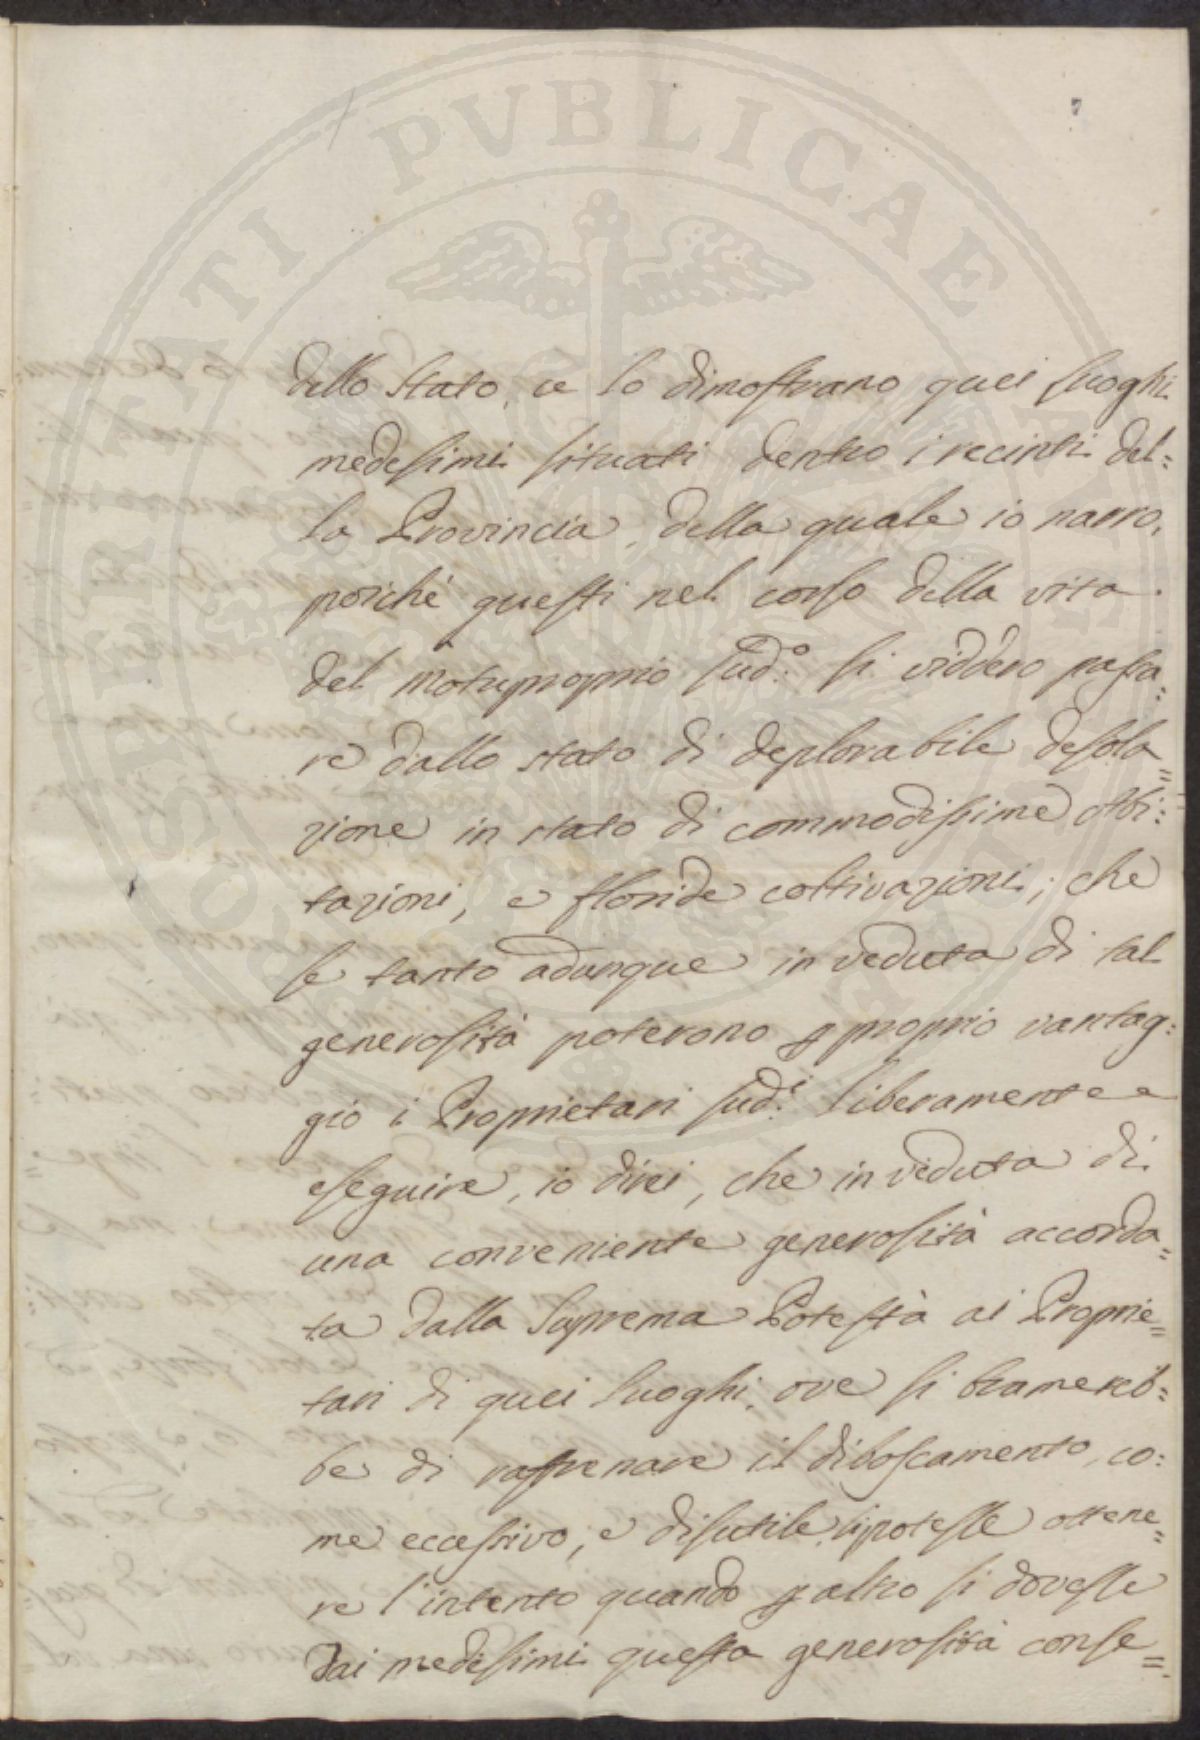 7
dello Stato, ce lo dimostrano quei luoghi
medesimi situati dentro i recinti del=
la Provincia, della quale io narro,
poiché questi nel corso della vita
del Motuproprio sud.º si viddero passa=
re dallo stato di deplorabile desola=
zione in stato di commodissime Abi=
tazioni, e floride coltivazioni; che
se tanto adunque in veduta di tal
generosità poterono p proprio vantag=
gio i Proprietari sud.i liberamente
eseguire, io direi, che in veduta di
una conveniente generosità accorda=
ta dalla Suprema Potestà ai Proprie=
tari di quei luoghi, ove si bramereb=
be di raffrenare il diboscamento, co=
me eccessivo, e disutile, si potesse ottene=
re l'intento quando p altro si dovesse
dai medesimi questa generosità conse=
PROSPERITATI PVBLICAE AVGENDAE